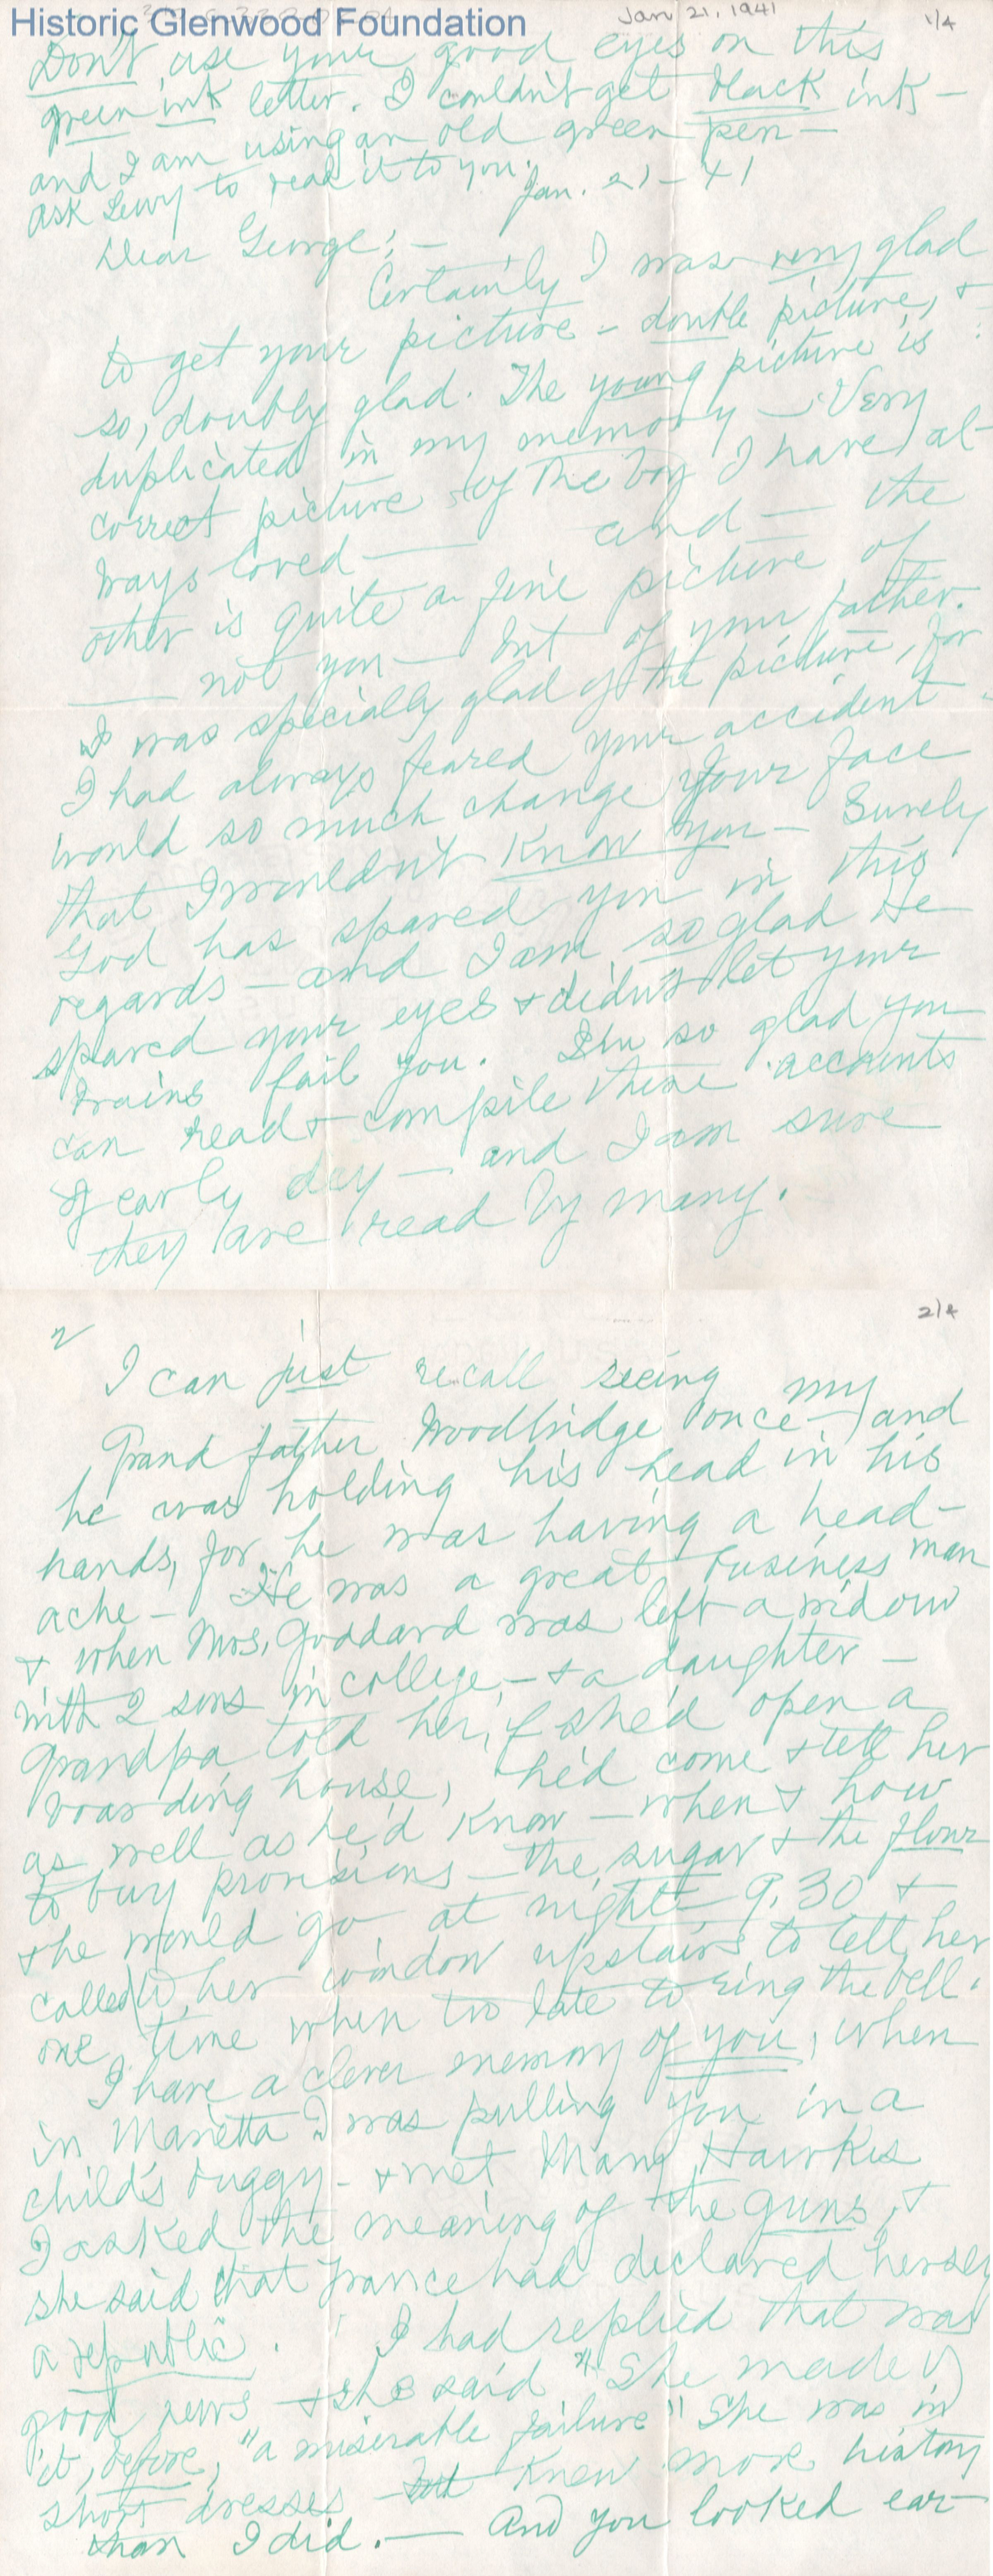 Historic Glenwood Foundation
Jan 21, 1941
1/4
Don't use your good eyes on this
green ink letter. I couldn't get black ink –
and I am using an old green pen –
ask Lewy to read it to you.
Jan. 21 – 41
Dear George; –
Certainly I was very glad
to get your picture – double picture, &
so, doubly glad. The young picture is
duplicated in my memory – Very
correct picture of the boy I have al-
ways loved — and — the
other is quite a fine picture of
— not you — but of your father.
I was specially glad of the picture, for
I had always feared your accident
would so much change your face
that I wouldn't know you – Surely
God has spared you in this
regards – and I am so glad He
spared your eyes & didn't let your
brains fail you. I'm so glad you
can read & compile these accounts
of early dey — and I am sure
they are read by many.
2/4
2
I can just recall seeing my
Grand father Woodbridge once – and
he was holding his head in his
hands, for he was having a head-
ache – He was a great business man
& when Mrs. Goddard was left a widow
with 2 sons in college, – & a daughter –
Grandpa told her, if she'd open a
boarding house, he'd come & tell her
as well as he'd know – when & how
to buy provisions – the sugar & the flour
& he would go at night 9.30 &
called to her window upstairs to tell her
one time when too late to ring the bell.
I have a clever memory of you, when
in Marietta I was pulling you in a
child's buggy – & met Mary Hawkes
I asked the meaning of the guns, &
she said that France had declared herself
a republic. I had replied that was
good news & she said "She made
it, before, "a miserable failure" She was in
short dresses – but knew more history
than I did. — And you looked ear-